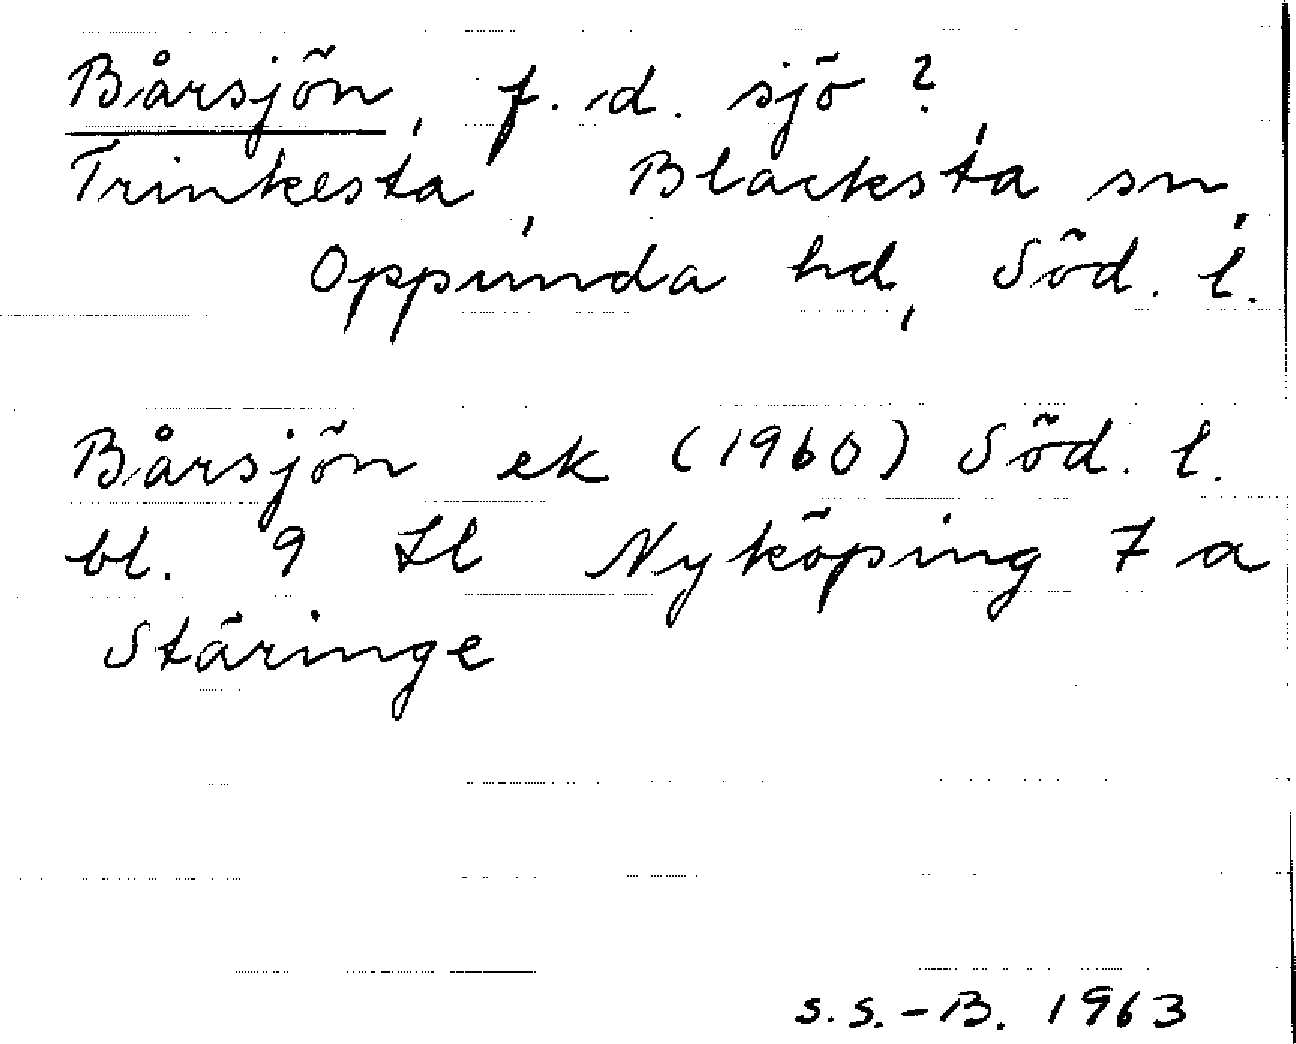 Bårsjön, f. d. sjö?,
Trinkesta, Blacksta sn,
Oppunda hd, Söd. l.
Bårsjön ek (1960) Söd. l.
bl. 9 Il Nyköping 7 a
Stäringe
S.S.-B. 1963